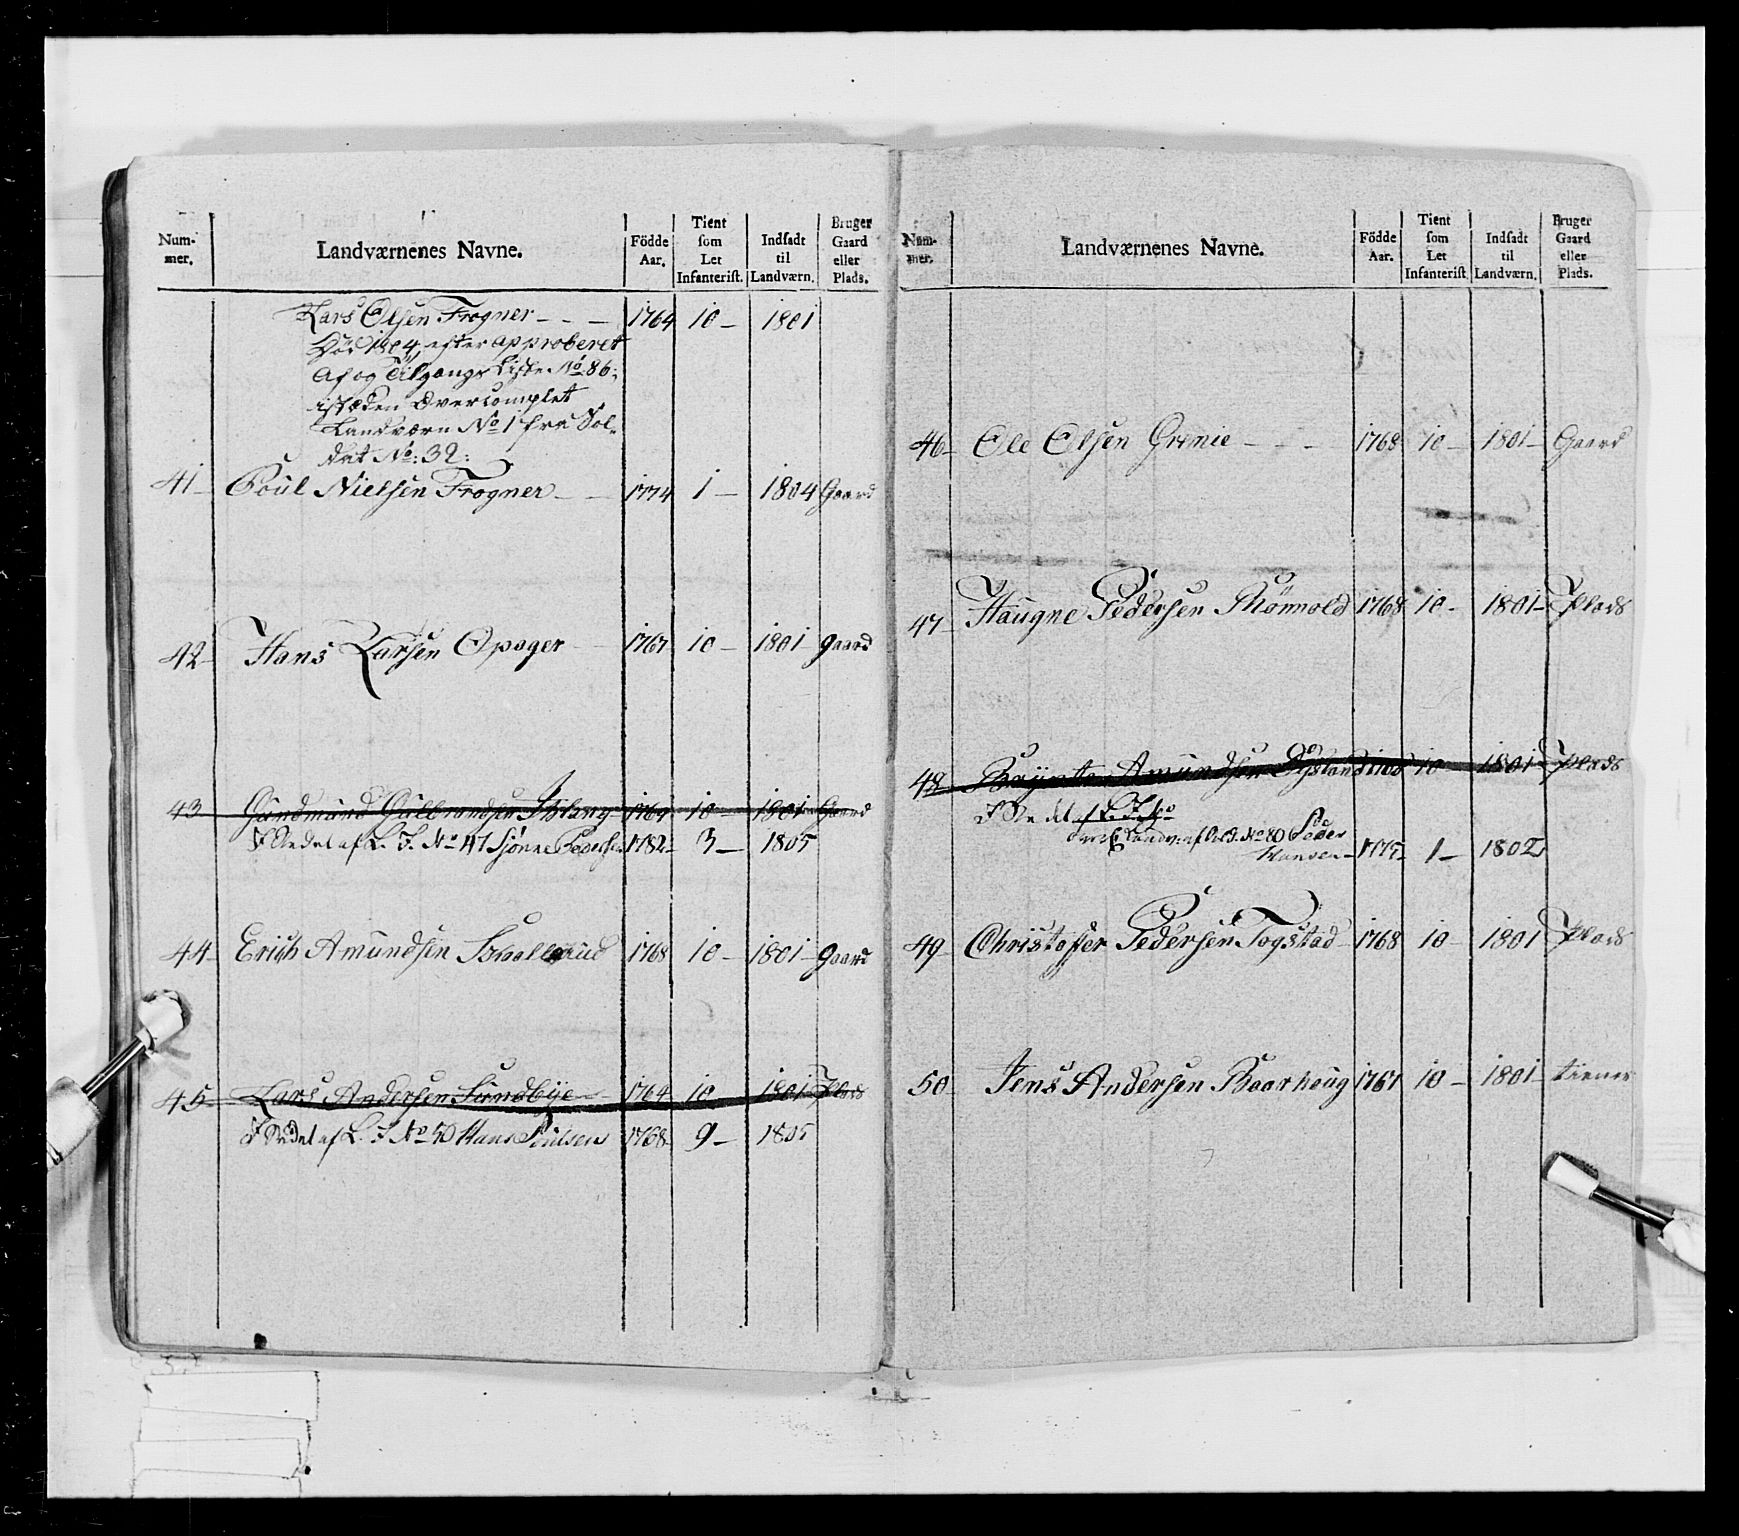 Num- mer. Landværnenes Navne. Födde Aar. Tient som Let Infanterist. Indsadt til Landværn. Bruger Gaard eller Plads.
Lars Olsen Frogner - - - 1764 10 - 1801
Död 1804, efter approberet
Af og Tilgangs Liste No 86:
istæden Overcomplet
Landværn No 1 fra Sol-
dat No: 32:
41 - Poul Nielsen Frogner - - 1774 1 - 1804 Gaard
42 - Hans Larsen Opager - 1767 10 - 1801 gaard
43 Gudmund Gulbrandsen 1764 10 - 1801 Gaard
I Stedet af L. I. No 47 Sjønne Pedersen 1782 - 3 - 1805
44 - Erich Amundsen 1768 10 - 1801 - gaard
45 - Lars Andersen Sundbye - 1764 10 1801 Plads
I Stedet af L. I. No 50 Hans Poulsen 1768 - 9 - 1805
Num- mer. Landværnenes Navne. Födde Aar. Tient som Let Infanterist. Indsadt til Landværn. Bruger Gaard eller Plads.
46 - Ole Olsen Grinie - - 1768 10 - 1801 - Gaard
47 - Haugne Pedersen 1768 10 - 1801 - Plads
48 Amundsen 10 - 1801 - Plads
I Stedet af
Landv: af No 80 Peder
Hansen - 1775 - 1 - 1802
49 - Christopher Pedersen Togstad - 1768 10 - 1801 Plads
50 - Jens Andersen Baarhoug 1767 10 - 1801 - tiener